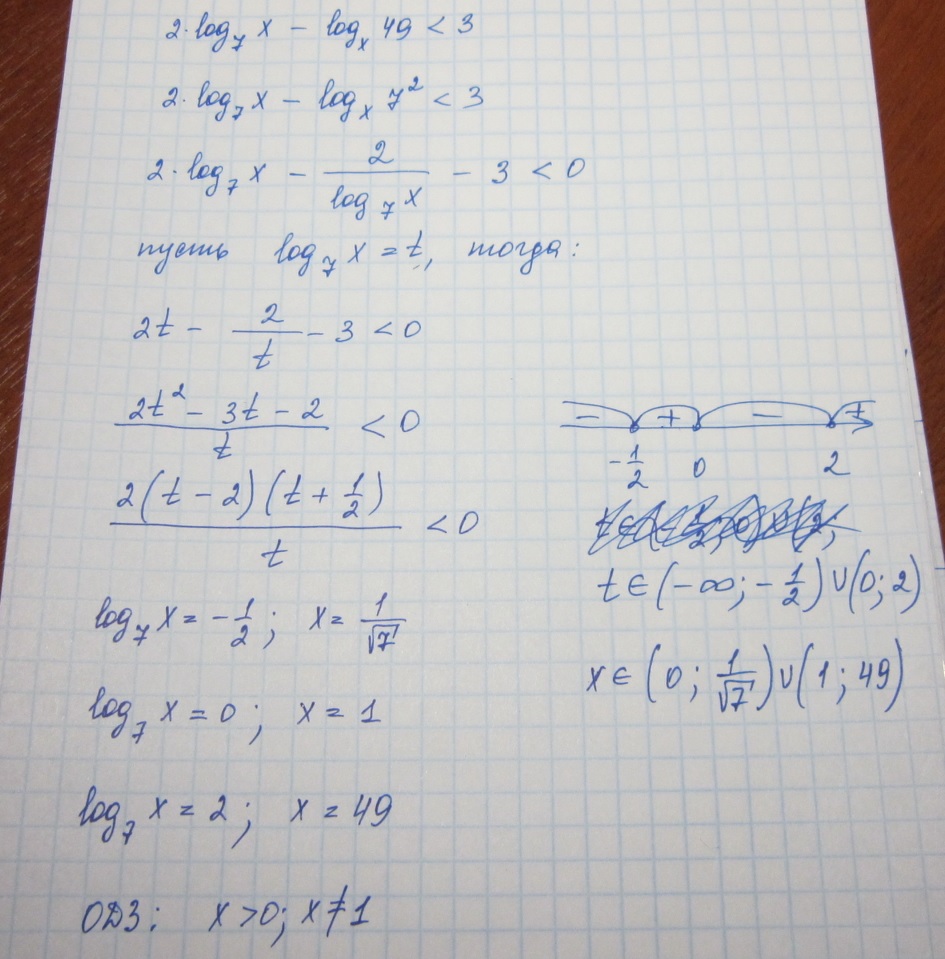 2·log₇ x − logₓ 49 < 3
2·log₇ x − logₓ 7² < 3
2·log₇ x − 2/(log₇ x) − 3 < 0
пусть log₇ x = t, тогда:
2t − 2/t − 3 < 0
(2t² − 3t − 2)/t < 0
2(t − 2)(t + 1/2)/t < 0
log₇ x = −1/2; x = 1/√7
log₇ x = 0; x = 1
log₇ x = 2; x = 49
ОДЗ: x > 0; x ≠ 1
− + − +
−1/2 0 2
t ∈ (−∞; −1/2) ∪ (0; 2)
x ∈ (0; 1/√7) ∪ (1; 49)